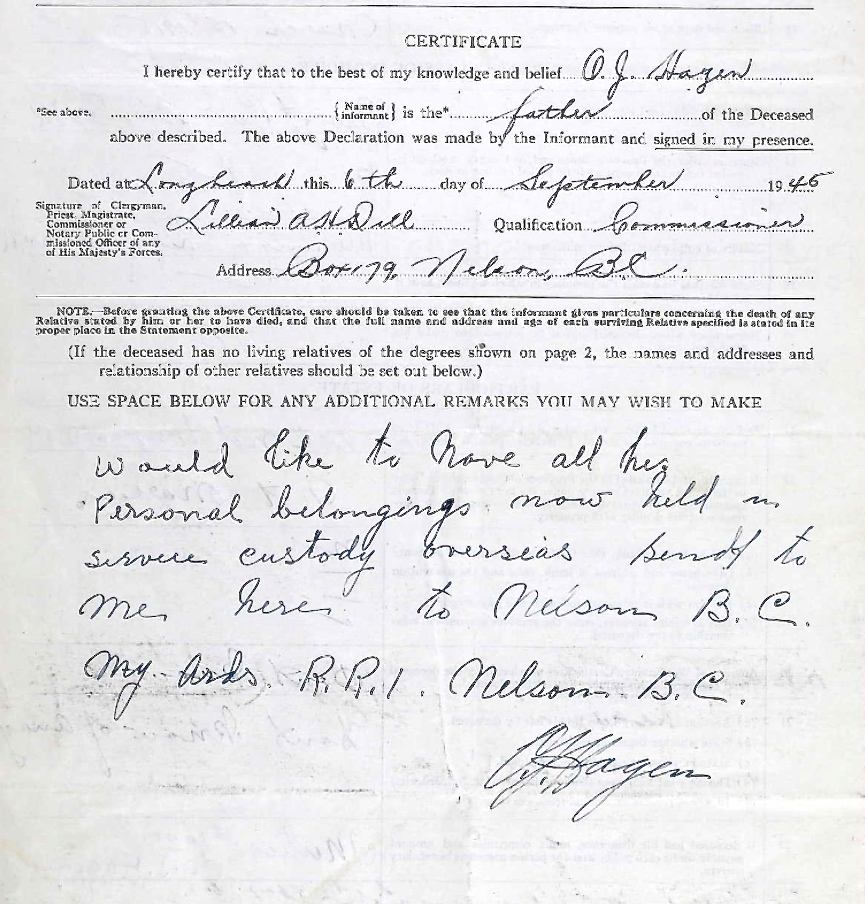 CERTIFICATE
I hereby certify that to the best of my knowledge and belief O. J. Hagen
*See above. {Name of informant} is the* father of the Deceased
above described. The above Declaration was made by the Informant and signed in my presence.
Dated at Longbeach this 6th day of September 1945
Signature of Clergyman, Priest, Magistrate, Commissioner or Notary Public or Commissioned Officer of any of His Majesty's Forces. Lillian A H Dill Qualification Commissioner
Address Box 179, Nelson, B.C.
NOTE.—Before granting the above Certificate, care should be taken to see that the informant gives particulars concerning the death of any
Relative stated by him or her to have died, and that the full name and address and age of each surviving Relative specified is stated in its
proper place in the Statement opposite.
(If the deceased has no living relatives of the degrees shown on page 2, the names and addresses and
relationship of other relatives should be set out below.)
USE SPACE BELOW FOR ANY ADDITIONAL REMARKS YOU MAY WISH TO MAKE
Would like to have all his
Personal belongings now held in
service custody overseas send to
me here to Nelson B.C.
My Ards. R.R.1. Nelson B.C.
O J Hagen